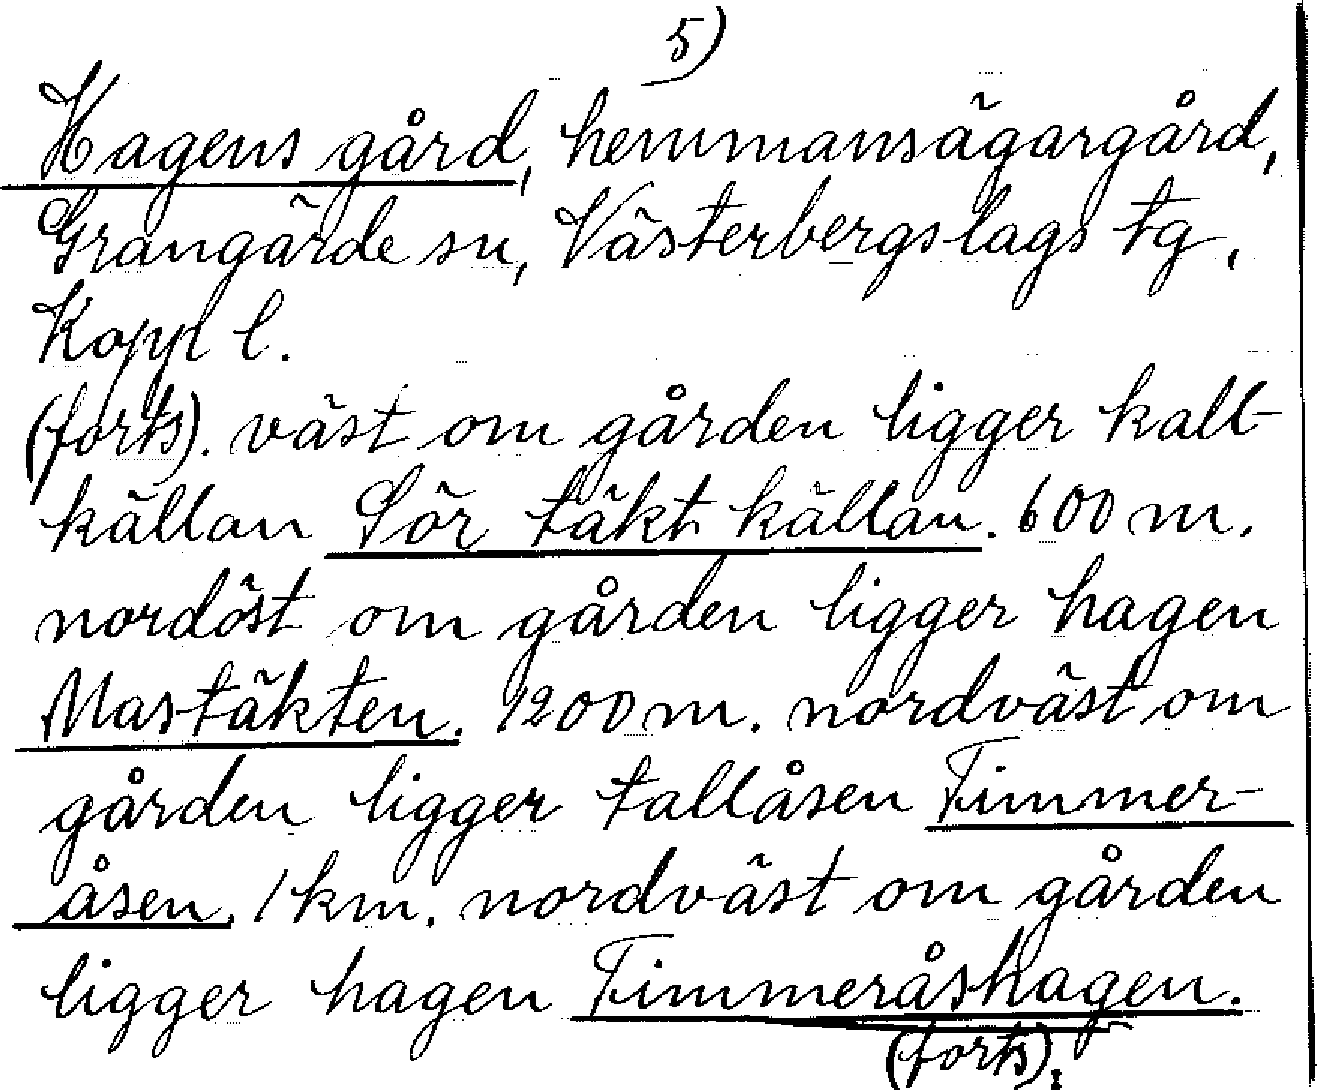 5)
Hagens gård, hemmansägargård,
Grangärde sn, Västerbergslags tg,
Kopp l.
(forts). väst om gården ligger kall-
källan Sör täkt källan. 600 m.
nordöst om gården ligger hagen
Mastäkten. 1200 m. nordväst om
gården ligger tallåsen Timmer-
åsen. 1 km. nordväst om gården
ligger hagen Timmeråshagen.
(forts).